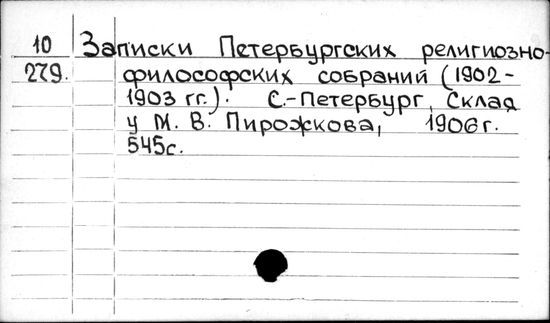 10 Записки Петербургских религиозно-
279. философских собраний (1902-
1903 гг.). С.-Петербург, Склад
у М. В. Пирожкова, 1906 г.
545с.